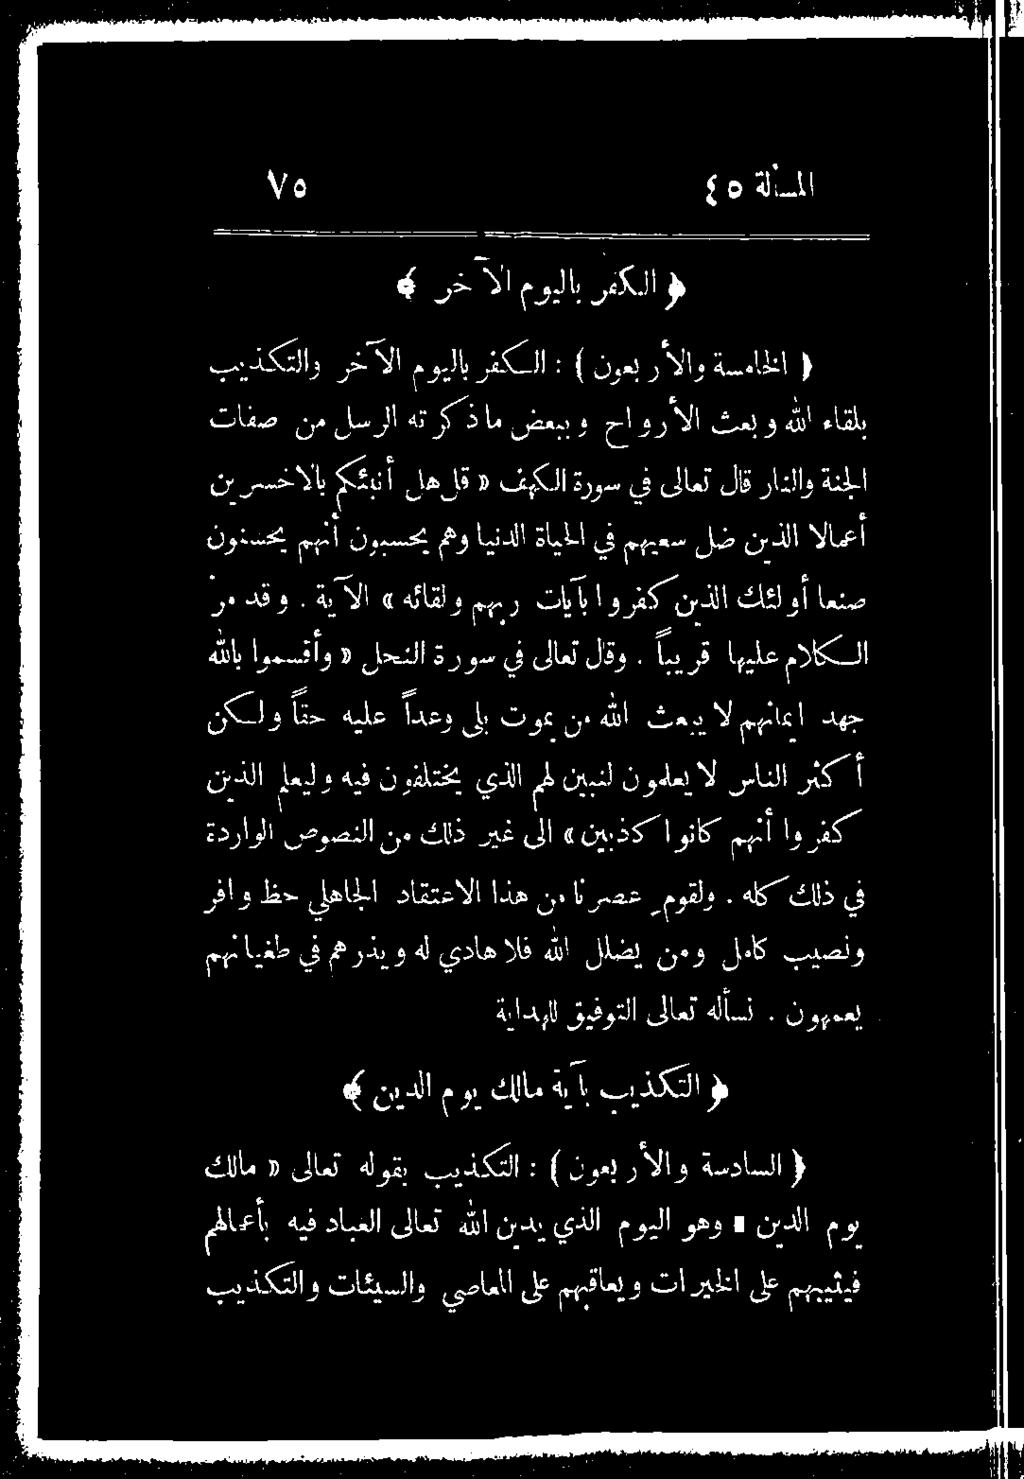 المسألة ٤٥ ٧٥
﴿ الكفر باليوم الآخر ﴾
( الخامسة والأربعون ) : الكفر باليوم الآخر والتكذيب
بلقاء الله وبعث الأرواح وببعض ما ذكرته الرسل من صفات
الجنة والنار قال تعالى في سورة الكهف « قل هل أنبئكم بالاخسرين
أعمالا الذين ضل سعيهم في الحياة الدنيا وهم يحسبون أنهم يحسنون
صنعا أولئك الذين كفروا بآيات ربهم ولقائه » الآية . وقد مرّ
الكلام عليها قريباً . وقال تعالى في سورة النحل « وأقسموا بالله
جهد ايمانهم لا يبعث الله من يموت بلى وعداً عليه حقاً ولكن
أكثر الناس لا يعلمون لنبين لهم الذي يختلفون فيه وليعلم الذين
كفروا أنهم كانوا كذبين » الى غير ذلك من النصوص الواردة
في ذلك كله . ولقومِ عصرنا من هذا الاعتقاد الجاهلي حظ وافر
ونصيب كامل ومن يضلل الله فلا هادي له ويذرهم في طغيانهم
يعمهون . نسأله تعالى التوفيق للهداية
﴿ التكذيب بآية مالك يوم الدين ﴾
( السادسة والأربعون ) : التكذيب بقوله تعالى « مالك
يوم الدين » وهو اليوم الذي يدين الله تعالى العباد فيه بأعمالهم
فيثيبهم على الخيرات ويعاقبهم على المعاصي والسيئات والتكذيب